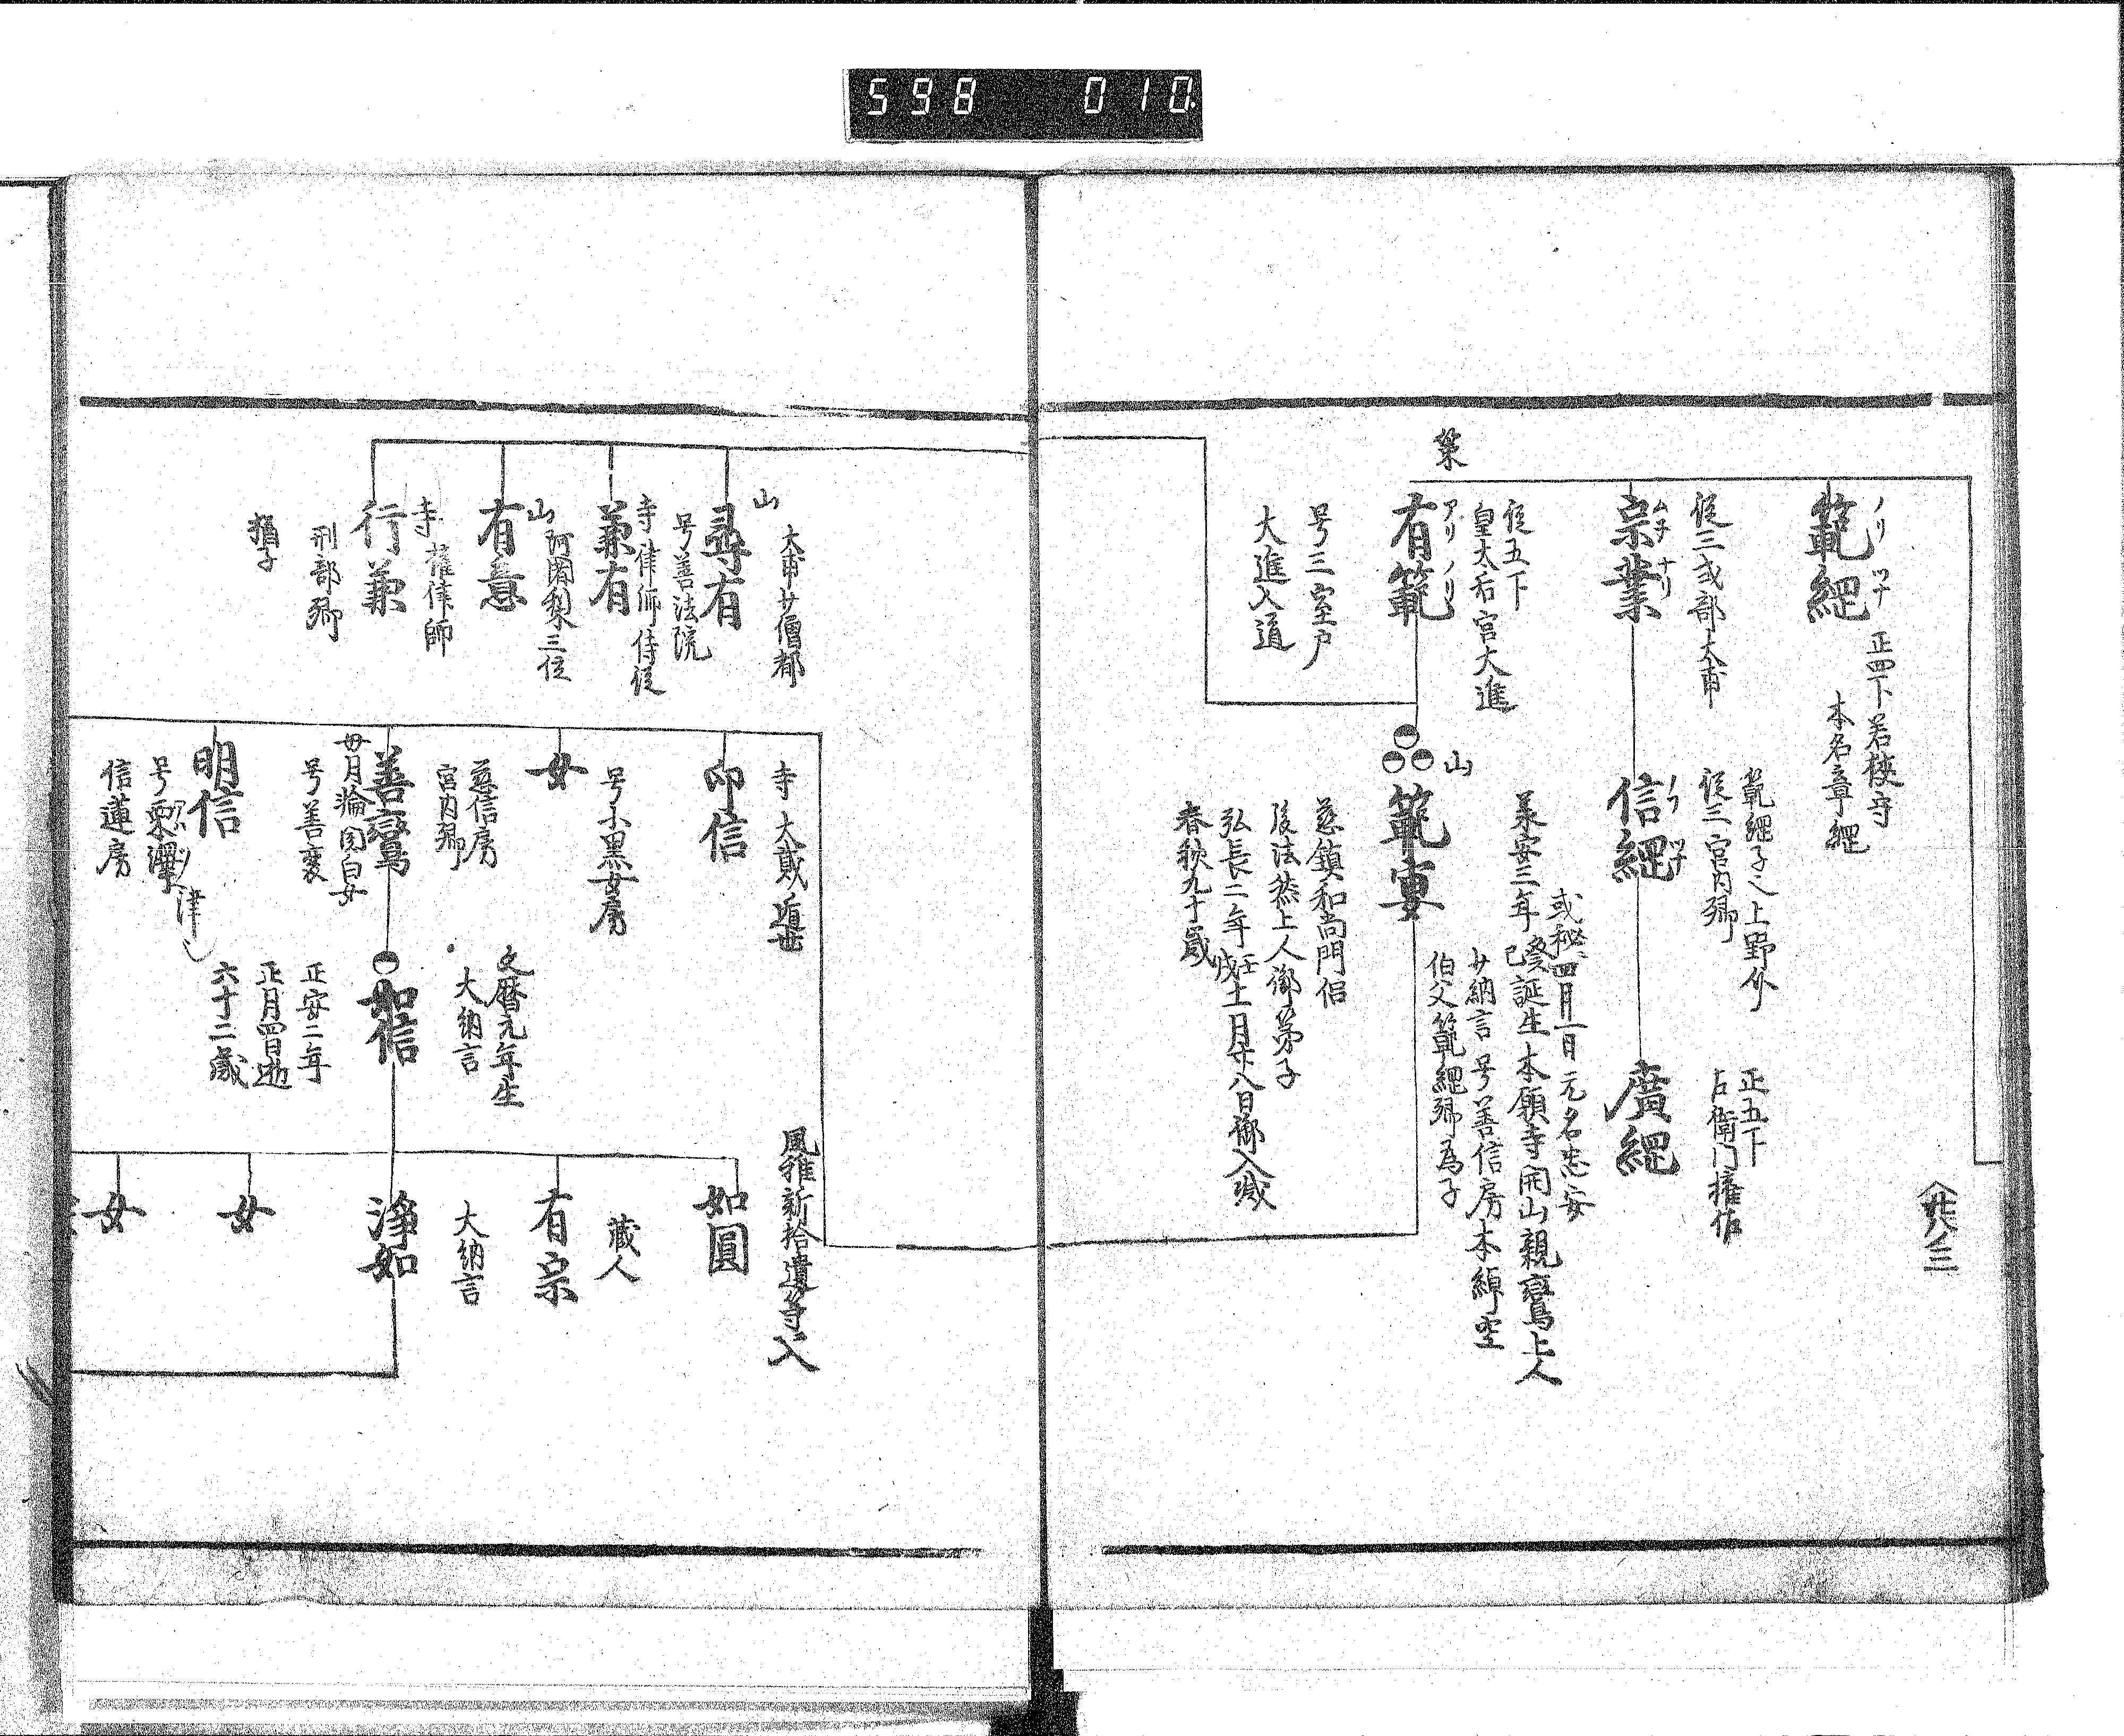 598 010
範綱
ノリ ツナ
正四下若狭守
本名章綱
従三式部大甫
宗業
ムネ ナリ
範綱子
従三宮内卿
信綱
正五下
右衛門権佐
廣綱
策
従五下
皇太后宮大進
有範
アリノリ
号三室戸
大進入道
山
範宴
或秘四月一日元名忠安
承安三年癸巳誕生本願寺開山親鸞上人
少納言号善信房本綽空
伯父範綱卿為子
慈鎮和尚門侶
後法然上人御弟子
弘長二年壬戌十一月廿八日御入滅
春秋九十歳
山
大甫少僧都
尋有
号善法院
寺律師侍従
兼有
山阿闍梨三位
有意
寺権律師
行兼
刑部卿
猶子
寺大貳遁世
印信
号小黒女房
女
慈信房
宮内卿
善鸞
母月輪関白女
号善
明信
号栗澤
津
信蓮房
文暦元年生
大納言
如信
正安二年
正月四日逝
六十二歳
風雅新拾遺等入
如圓
蔵人
有宗
大納言
浄如
女
女